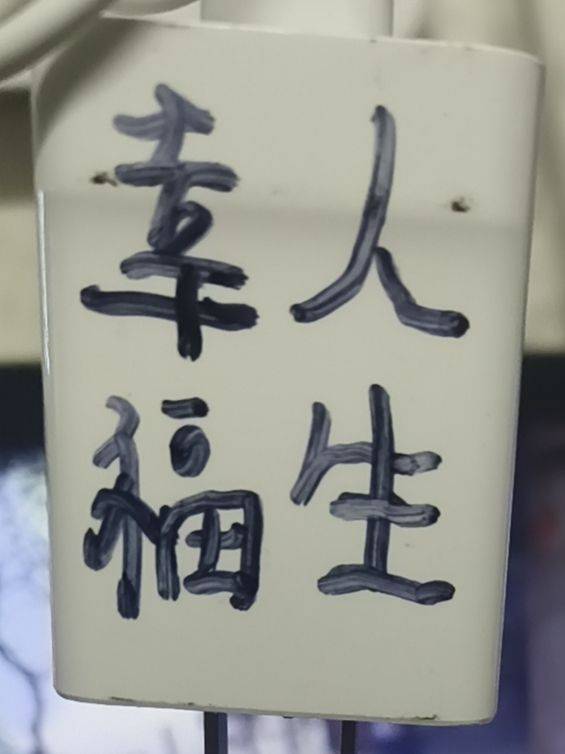 人生
幸福